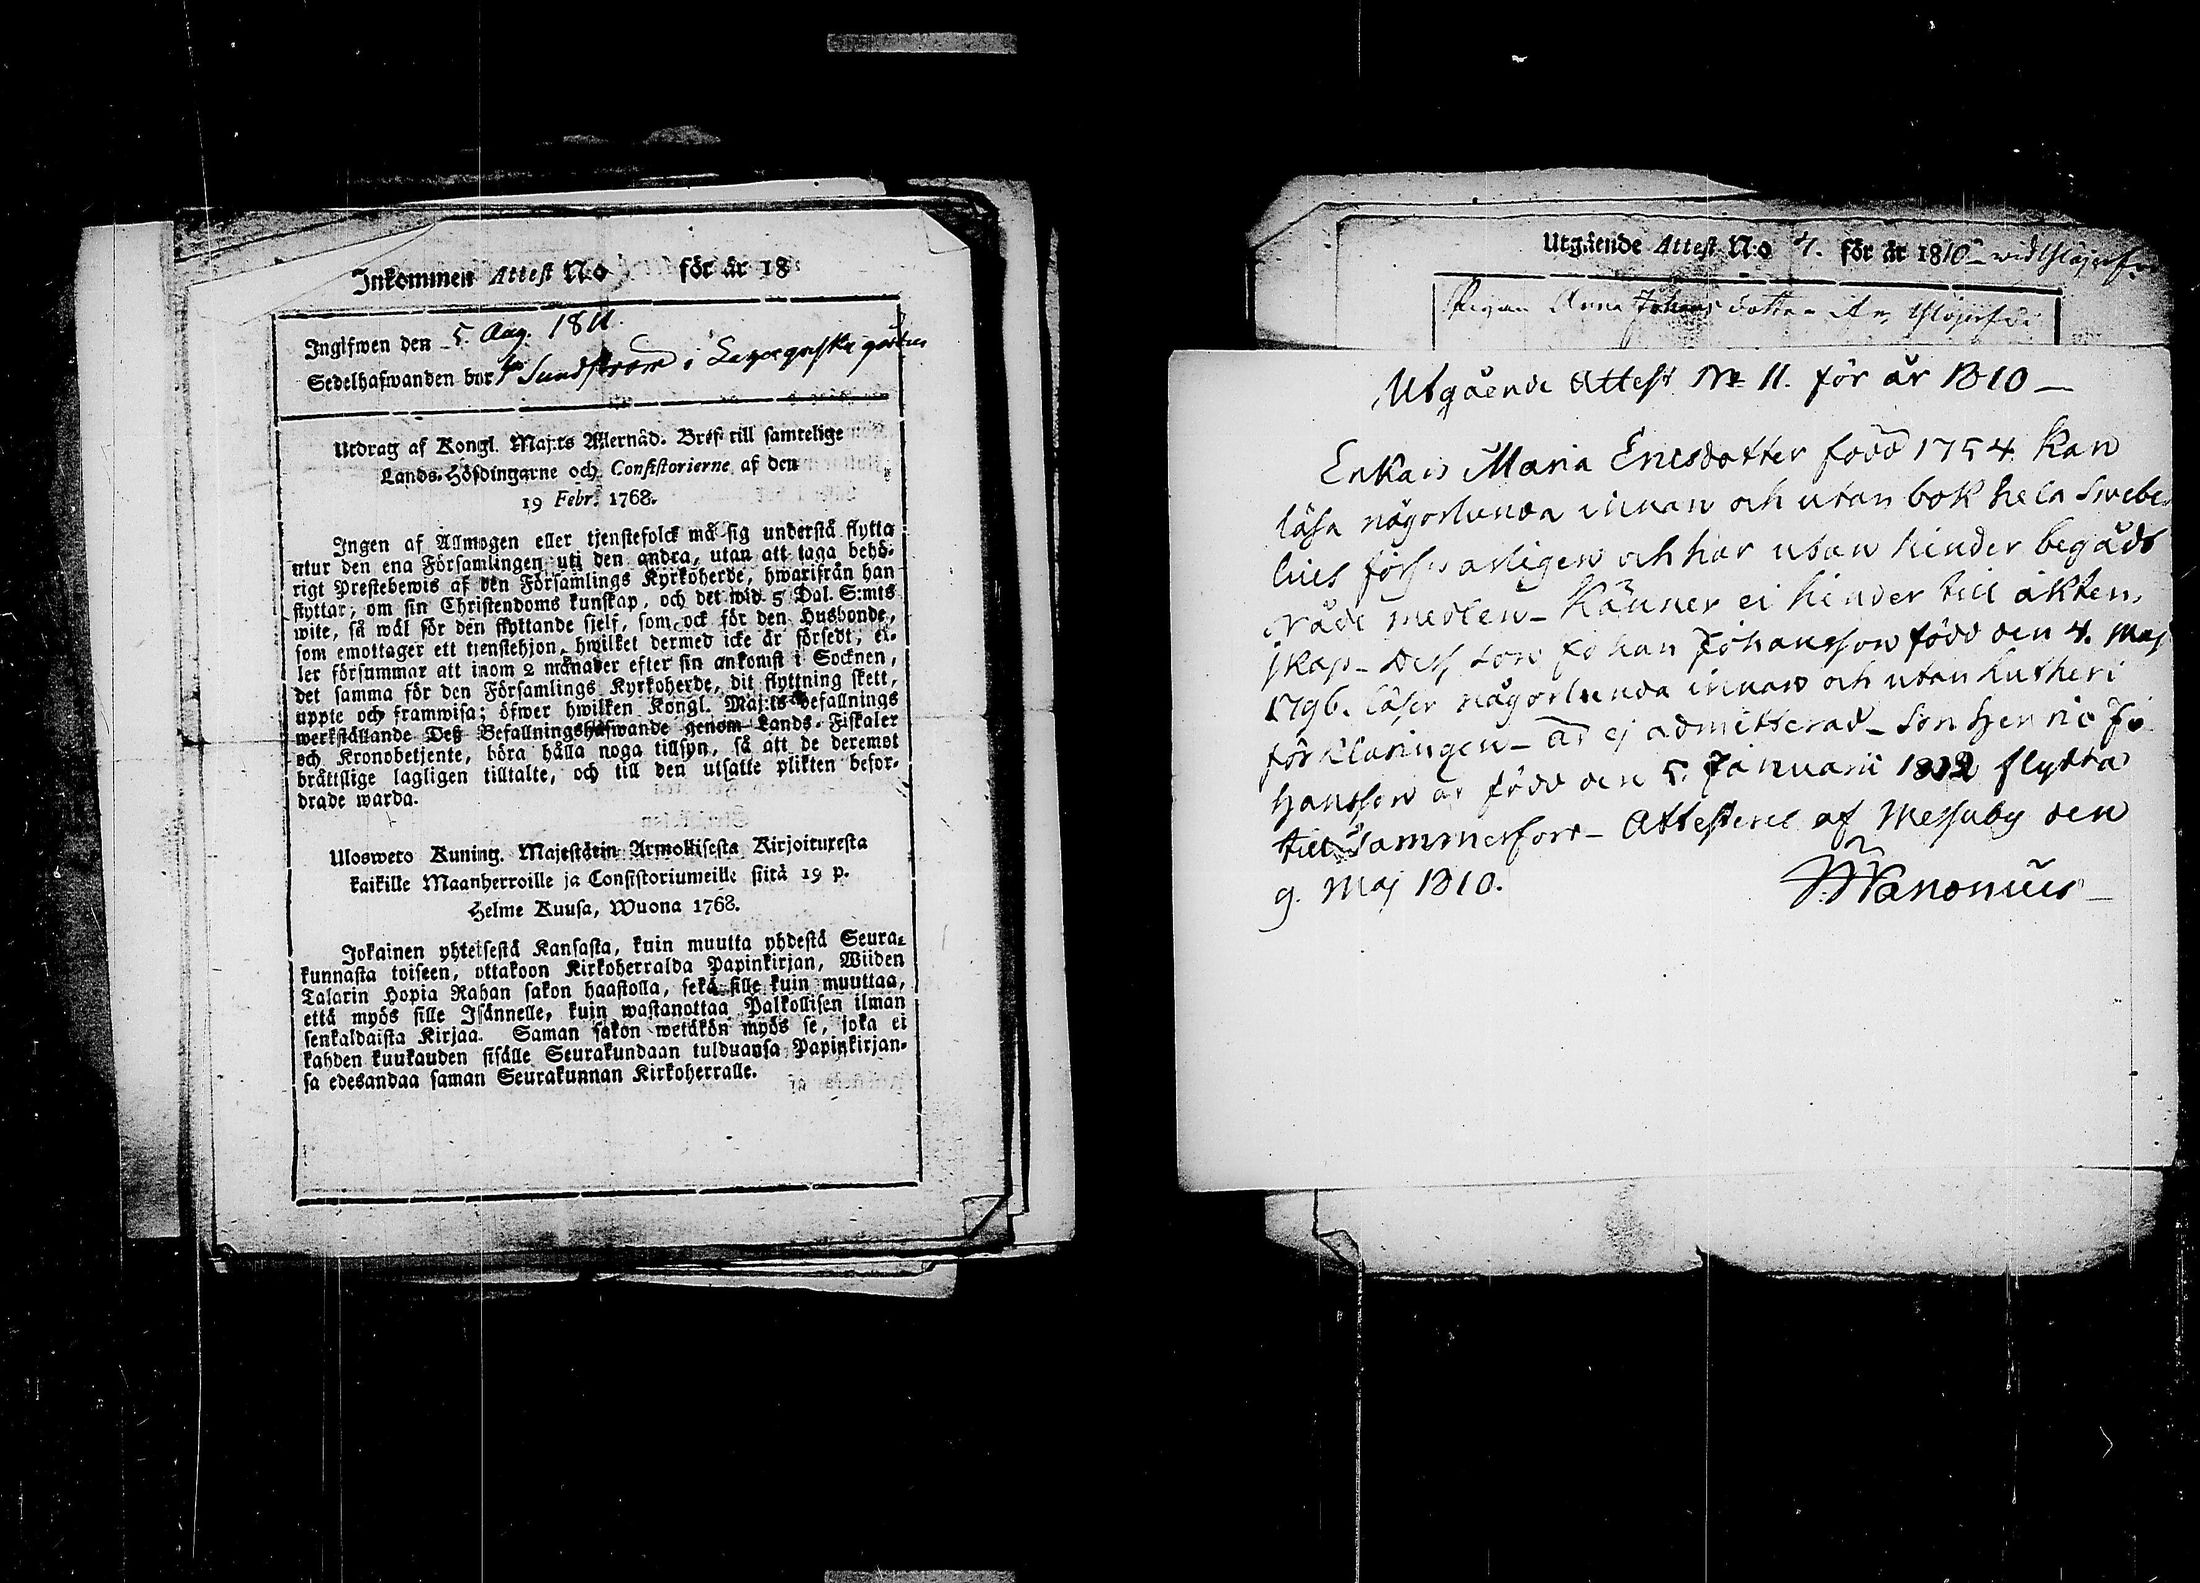 Inkommen Attest No för år 18
Ingifwen den 5. Aug. 1811.
Sedelhafwanden bor Sundström i gården
Utdrag af Kongl. Maj:ts Allernåd. Bref till samtelige
Lands-Höfdingarne och Consistorierne af den
19 Febr. 1768.
Ingen af Allmogen eller tjenstefolck må sig understå flytta
utur den ena Församlingen uti den andra, utan att taga behö-
rigt Prestebewis af den Församlings Kyrkoherde, hwarifrån han
flyttar, om sin Christendoms kunskap, och det wid 5 Dal. S:mts
wite, så wäl för den flyttande sjelf, som ock för den Husbonde,
som emottager ett tjenstehjon, hwilket dermed icke är försedt, el-
ler försummar att inom 2 månader efter sin ankomst i Socknen,
det samma för den Församlings Kyrkoherde, dit flyttning skett,
uppte och framwisa; öfwer hwilken Kongl. Maj:ts befallnings
werkställande Deß Befallningshafwande genom Lands-Fiskaler
och Kronobetjente, böra hålla noga tillsyn, så att de deremot
bråttslige lagligen tilltalte, och till den utsatte plikten befor-
drade warda.
Uloswero Kuning. Majestätin Armollisesta Kirjoituxesta
kaikille Maanherroille ja Consistoriumeille siitä 19 p.
Helme Kuusa, Wuona 1768.
Jokainen yhteisestä Kansasta, kuin muutta yhdestä Seura-
kunnasta toiseen, ottakoon Kirkoherralda Papinkirjan, Wiiden
Talarin Hopia Rahan sakon haastolla, sekä sille kuin muuttaa,
että myös sille Isännelle, kuin wastanottaa Palkollisen ilman
senkaldaista Kirjaa. Saman sakon wetäkön myös se, joka ei
kahden kuukauden sisälle Seurakundaan tulduansa Papinkirjan-
sa edesandaa saman Seurakunnan Kirkoherralle.
Utgående Attest N:o 4. för år 1810
Pigan Anna Johans dotter
Utgående Attest No 11. för år 1810 —
Enkan Maria Ericsdotter född 1754 kan
läsa någorlunda innan och utan bok hela Swebe
lius försvarligen och har utan hinder begådt
nåde medlen – känner ei hinder till äkten,
skap – Dess son Johan Johansson född den 4. Maj
1796. läser någorlunda innan och utan Lutheri
förklaringen – är ej admitterad – son Henric Jo
hansson är född den 5. Januarii 1802 flytta
till Tammerfors – Attesterel af Messuby den
9. Maj 1810. Wanonius –